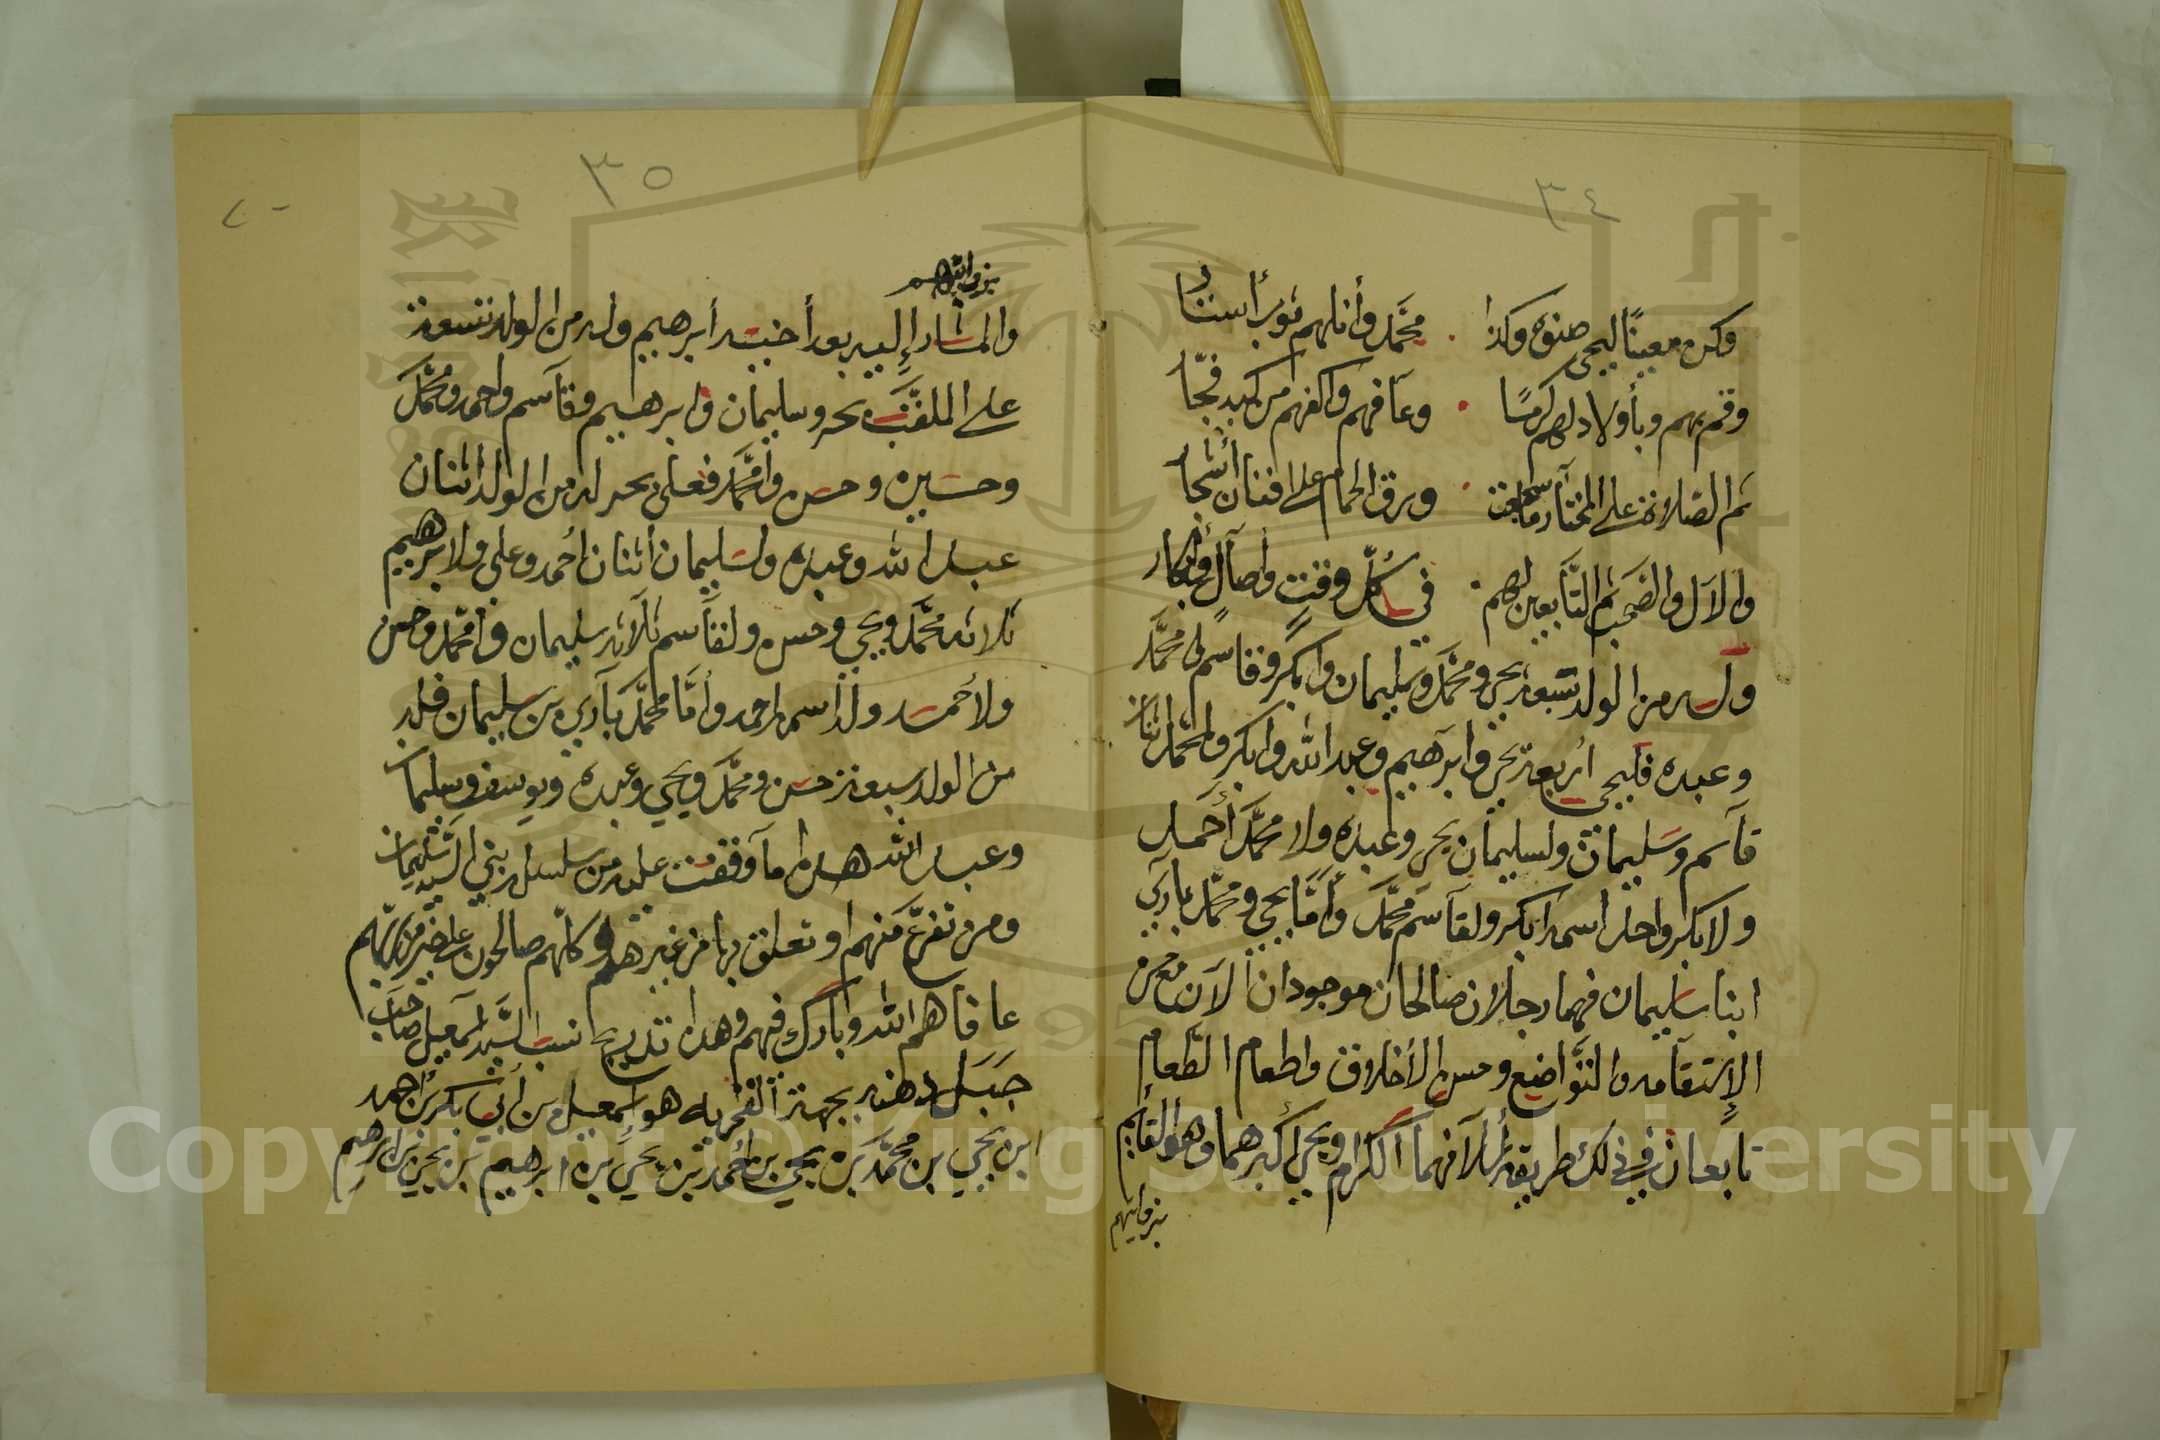 ٣٤
وكن معينًا ليحيى صنوه وكذا محمد وأنلهم ثوب أستار
وقم بهم وبأولاد لهم كرمًا وعافهم واكفهم من كيد فجار
ثم الصلاة على المختار ما سجعت ورق الحمام على افنان أشجار
والآل والصحب ثم التابعين لهم في كل وقت وآصال وأبكار
وله من الولد سبعة يحيى ومحمد وسليمان وابكر وقاسم ومحمد
وعبده فليحيى أربعة يحيى وابرهيم وعبد الله وابكر ولمحمد اثنان
قاسم وسليمان ولسليمان يحيى وعبده ولا محمد أحمد
ولا بكر واحد اسمه ابكر ولقاسم محمد وأما يحيى ومحمد باري
ابنا سليمان فهما رجلان صالحان موجودان الآن مع
الإستقامه والتواضع وحسن الأخلاق واطعام الطعام
تابعان في ذلك طريقة أسلافهما الكرام ويحيى أكبرهما وهو القايم
بزوايتهم
٣٥
بزوايتهم
والمشار إليه بعد أخيه أبرهيم وله من الولد تسعة
علي الملقب بحر وسليمان وابرهيم وقاسم واحمد ومحمد
وحسين وحسن وامحمد فعلي بحر له من الولد اثنان
عبد الله وعبده ولسليمان اثنان أحمد وعلي ولابرهيم
ثلاثه محمد ويحيى وحسن ولقاسم ثلاثه سليمان وامحمد وحسن
ولأحمد ولد اسمه احمد وأما محمد باري بن سليمان فله
من الولد سبعة حسن ومحمد ويحيى وعبده ويوسف وسليمان
وعبد الله هذا ما وقفت عليه من سلسلة بني السيد سليمان
ومن تفرع منهم او تعلق بها من غيرهم وكلهم صالحون على خير من ربهم
عافاهم الله وبارك فيهم وهذا تدريج نسب السيد إسمعيل صاحب
جبل دهنه بجهة الفخريه هو إسمعيل بن أبي بكر بن احمد
ابن يحيى بن محمد بن يحيى بن أحمد بن يحيى بن ابرهيم بن يحيى بن ابرهيم